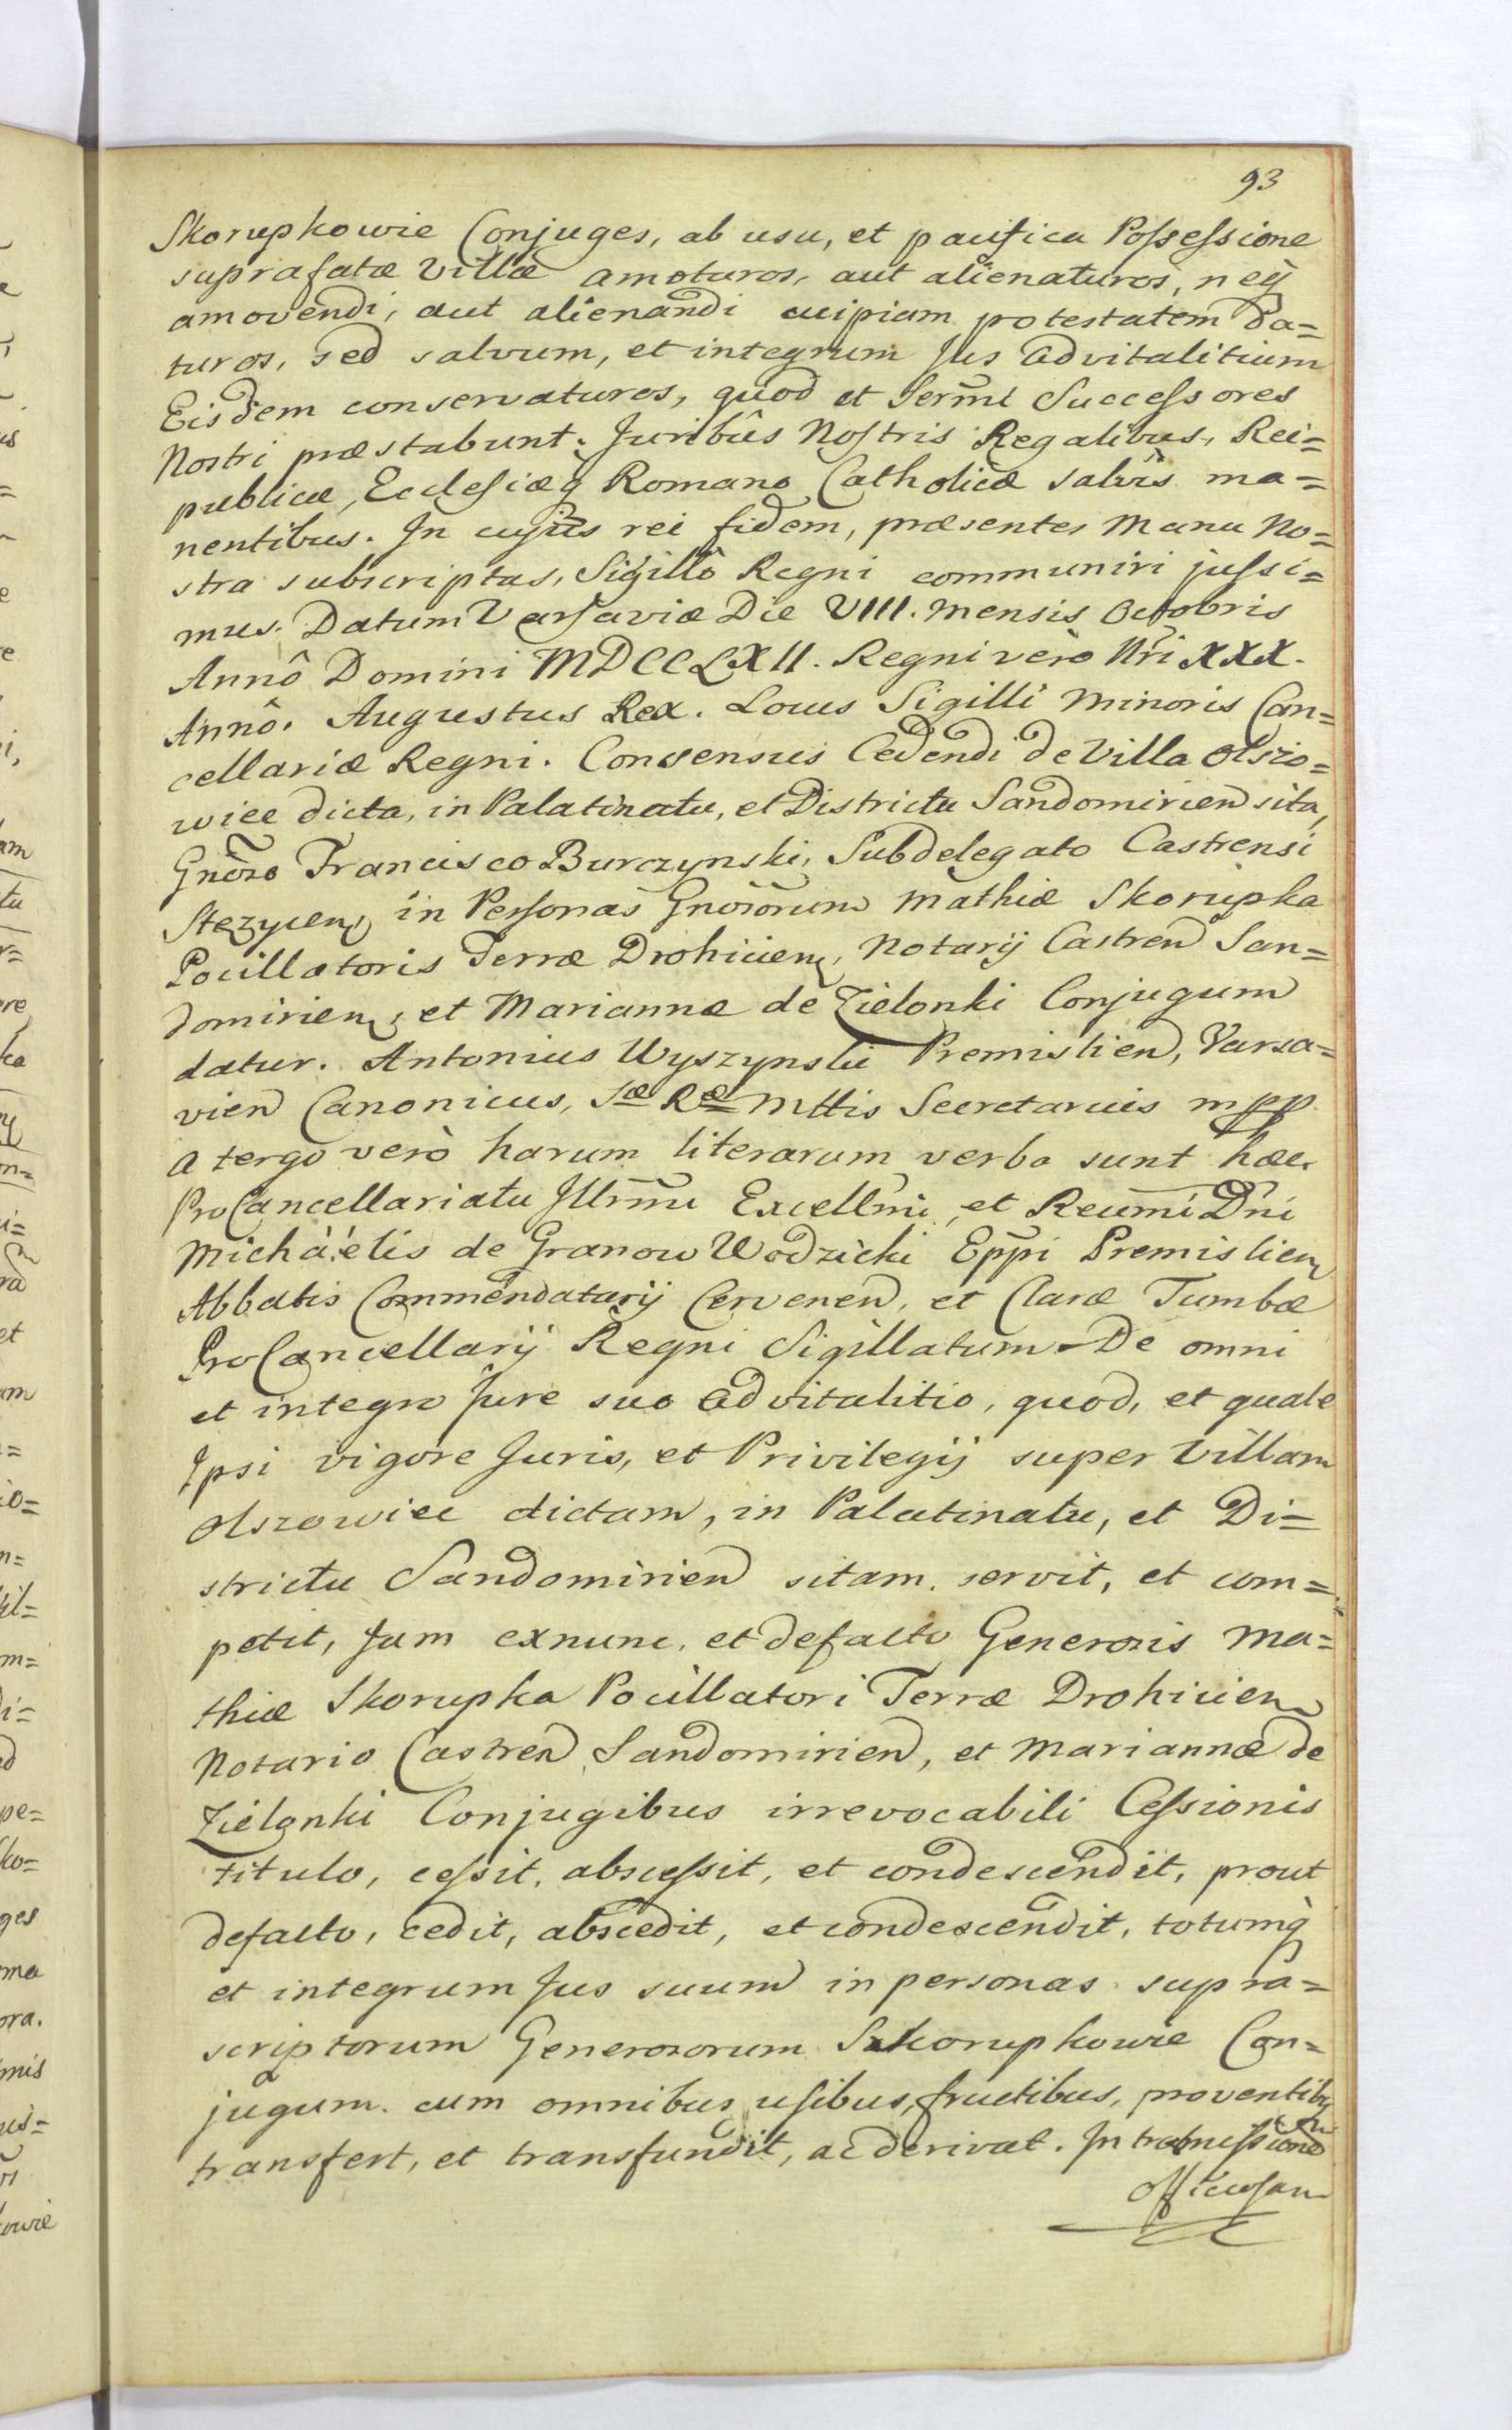 93
Skorupkowie Conjuges, ab usu, et pacifica Possessione
suprafatæ Villæ amoturos, aut alienaturos, neq
amovendi, aut alienandi cuipiam potestatem da=
turos, sed salvum, et integrum Jus advitalitium
Eisdem conservaturos, quod et Sermi Successores
Nostri præstabunt. Juribûs Nostris Regalibus, Rei=
publicæ, Ecclesiæq Romano Catholicæ salvis ma=
nentibus. In cujus rei fidem, præsentes Manu No=
stra subscriptas, Sigillô Regni communiri jussi=
mus. Datum Varsaviæ Die VIII. Mensis Octobris
Annô Domini MDCCLXII. Regni verò Nri XXX.
Annô. Augustus Rex. Locus Sigilli Minoris Can=
cellariæ Regni. Consensus Cedendi de Villa Olszo=
wiec dicta, in Palatinatu, et Districtu Sandomirien sita,
Gnõso Francisco Burczynski, Subdelegato Castrensi
Stezycen in Personas Gnõsorum Mathiæ Skorupka
Pocillatoris Terræ Drohicien, Notarij Castren San=
domirien, et Mariannæ de Zielonki Conjugum
datur. Antonius Wyszynski Premislien, Varsa=
vien Canonicus, Sæ Ræ Mttis Secretarius mpp
A tergo verò harum literarum verba sunt hæc.
ProCancellariatu Illrmi Excellmi, et Reumi Dni
Michàélis de Granow Wodzicki Eppi Premislien
Abbatis Commendatarij Cervenen, et Claræ Tumbæ
ProCancellarij Regni Sigillatum. De omni
et integro Jure suo advitalitio, quod, et quale
Ipsi vigore Juris, et Privilegij super Villam
Olszowiec dictam, in Palatinatu, et Di=
strictu Sandomirien sitam. servit, et com=
petit, Jam exnunc, et defacto Generosis Ma=
thiæ Skorupka Pocillatori Terræ Drohicien
Notario Castren Sandomirien, et Mariannæ de
Zielonki Conjugibus irrevocabili Cessionis
titulo, cessit, abscessit, et condescendit, prout
defacto, cedit, abscedit, et condescendit, totumq
et integrum Jus suum in personas supra=
scriptorum Generosorum Skorupkowie Con=
jugum. cum omnibus usibus, fructibus, proventibq
transfert, et transfundit, ac derivat. Intromissione
Officiosam